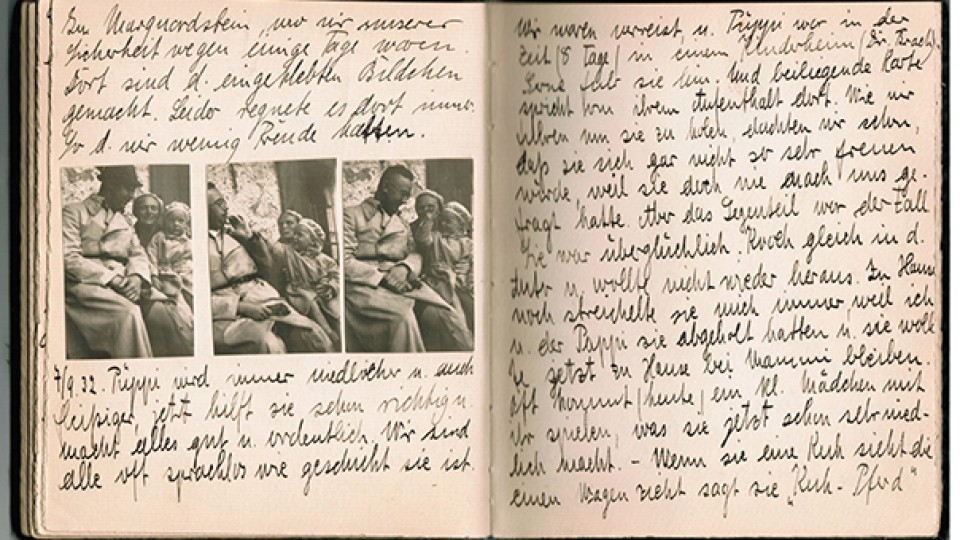 In Marquardstein, wo wir unserer
Sicherheit wegen einige Tage waren.
Dort sind d. eingeklebten Bildchen
gemacht. Leider regnete es dort immer
So d. wir wenig Freude hatten.
7/9 32. Püppi wird immer niedlicher u. auch
jetzt hilft sie schon richtig u.
macht alles gut u. ordentlich. Wir sind
alle oft sprachlos wie geschickt sie ist.
Wir waren verreist, u. Püppi war in der
Zeit (8 Tage) in einem Kinderheim
sie hin. Und beiliegende Karte
spricht von ihrem Aufenthalt dort. Wie wir
um sie zu holen, dachten wir schon,
daß sie sich gar nicht so sehr freuen
würde, weil sie doch nie nach uns ge-
fragt hatte. Aber das Gegenteil war der Fall
Sie war überglücklich. Kroch gleich in d.
Auto u. wollte nicht wieder heraus. Zu Hause
noch streichelte sie mich immer, weil ich
u. der Pappi sie abgeholt hatten u. sie wolle
jetzt zu Hause bei Mammi bleiben.
Oft kommt (heute) ein kl. Mädchen mit
ihr spielen, was sie jetzt schon sehr nied-
lich macht. – Wenn sie eine Kuh sieht die
einen Wagen zieht sagt sie „Kuh - Pferd"